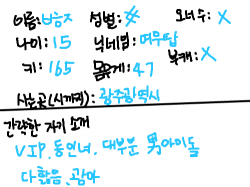 이름: 늉지 성별: 犬 오너수: X
나이: 15 닉네임: 여우탑
키: 165 몸무게: 47 복캐: X
사는곳(시까지): 광주광역시
간략한 자기 소개
VIP, 동인녀, 대부분 男아이돌
다 핥음, 광아